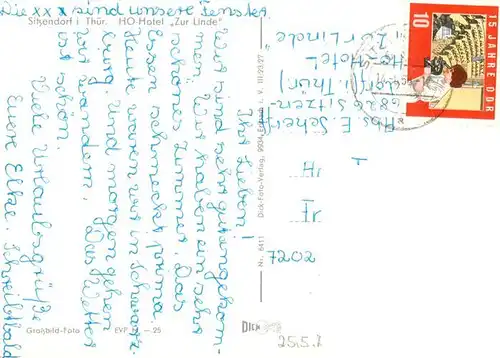 Die xxx sind unsere Fenster
Sitzendorf i Thür. HO-Hotel „Zur Linde"
Ihr Lieben!
Wir sind sehr gut angekom-
men. Wir haben ein sehr
schönes Zimmer. Das
Essen schmeckt prima.
Heute waren wir in Schwarz-
burg und morgen gehen
wir wandern. Das Wetter
ist schön.
Viele Urlaubsgrüße
Eure Elke. Schreibt bald
Großbild-Foto EVP —.25
Dick-Foto-Verlag, 9934 Erlbach i. V. III/23/27
Nr. 6411
DICK
Abs. E. Scherf
6826 Sitzen-
dorf (Thür)
HO-Hotel
„Zur Linde"
15 JAHRE DDR
10
7202
25.5.